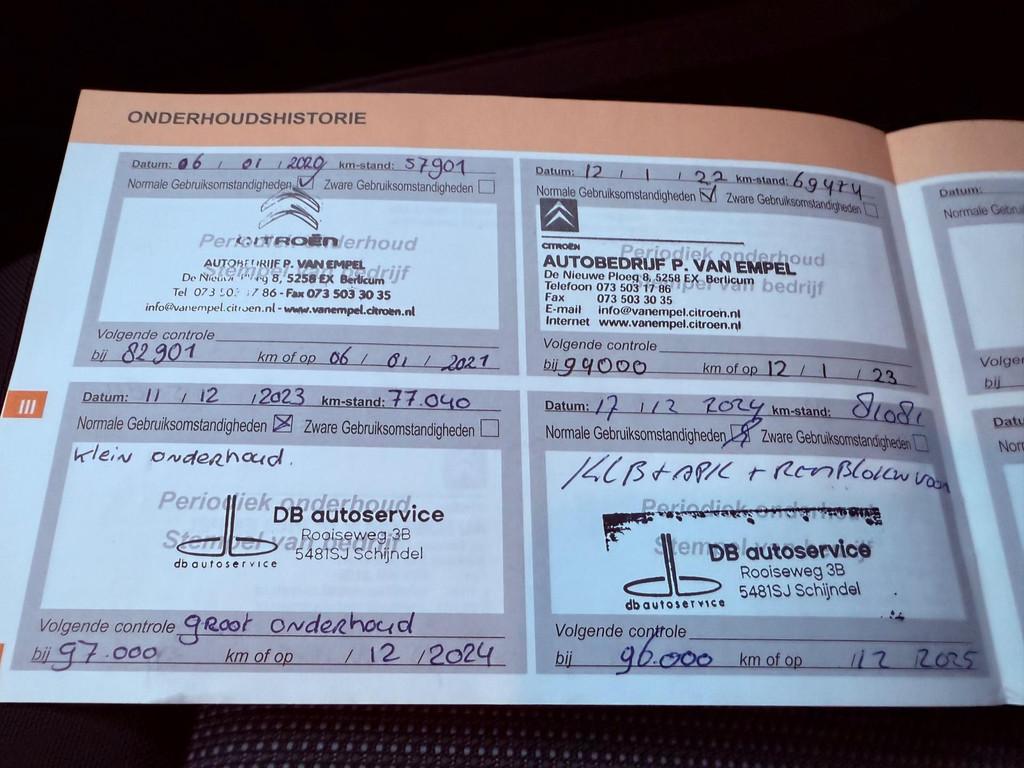 ONDERHOUDSHISTORIE
Datum: 06 / 01 / 2020 km-stand: 57901
Normale Gebruiksomstandigheden Zware Gebruiksomstandigheden
CITROËN
Periodiek onderhoud
Stempel van bedrijf
AUTOBEDRIJF P. VAN EMPEL
De Nieuwe Ploeg 8, 5258 EX Berlicum
Tel 073 503 17 86 - Fax 073 503 30 35
info@vanempel.citroen.nl - www.vanempel.citroen.nl
Volgende controle
bij 82901 km of op 06 / 01 / 2021
Datum: 12 / 1 / 22 km-stand: 69474
Normale Gebruiksomstandigheden Zware Gebruiksomstandigheden
CITROËN
Periodiek onderhoud
AUTOBEDRIJF P. VAN EMPEL
Stempel van bedrijf
De Nieuwe Ploeg 8, 5258 EX Berlicum
Telefoon 073 503 17 86
Fax 073 503 30 35
E-mail info@vanempel.citroen.nl
Internet www.vanempel.citroen.nl
Volgende controle
bij 94000 km of op 12 / 1 / 23
III
Datum: 11 / 12 / 2023 km-stand: 77.040
Normale Gebruiksomstandigheden Zware Gebruiksomstandigheden
Klein onderhoud.
Periodiek onderhoud
Stempel van bedrijf
DB autoservice
Rooiseweg 3B
5481SJ Schijndel
db autoservice
Volgende controle groot onderhoud
bij 97.000 km of op / 12 / 2024
Datum: 17 / 12 2024 km-stand: 81081
Normale Gebruiksomstandigheden Zware Gebruiksomstandigheden
KLB + APK + Remblokken voor
Periodiek onderhoud
Stempel van bedrijf
DB autoservice
Rooiseweg 3B
5481SJ Schijndel
db autoservice
Volgende controle
bij 96.000 km of op 12 2025
Datum:
Normale
Volge
bij
Datu
Norm